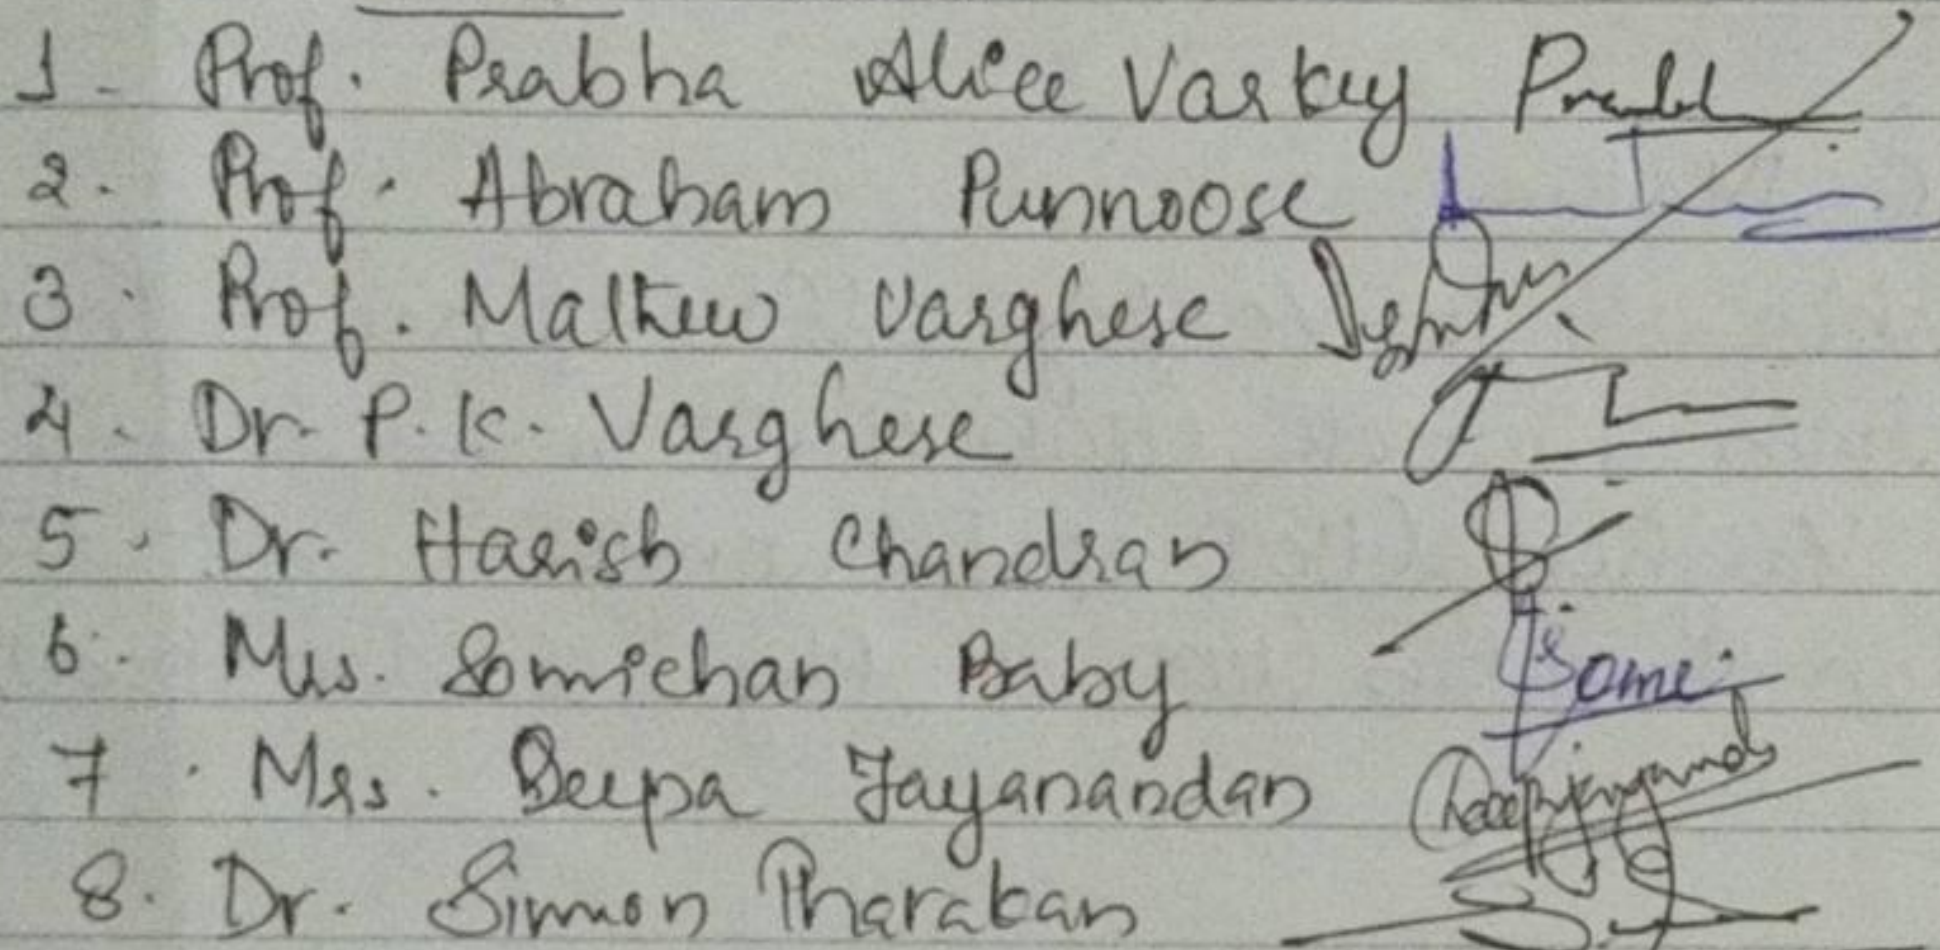 1. Prof. Prabha Alice Varkey
2. Prof. Abraham Punnoose
3. Prof. Mathew Varghese
4. Dr. P.K. Varghese
5. Dr. Harish Chandran
6. Mrs. Somichan Baby Some
7. Mrs. Deepa Jayanandan
8. Dr. Simon Tharakan